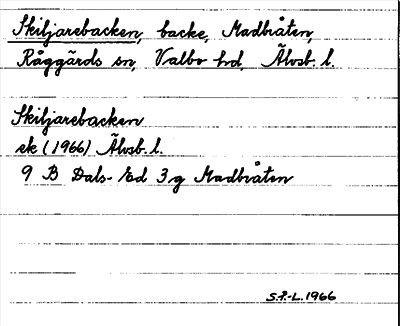 Skiljarebacken, backe, Madbråten,
Råggärds sn, Valbo hd, Älvsb. l.
Skiljarebacken
ek (1966) Älvsb. l.
9 B Dals-Ed 3g Madbråten
S.P.-L. 1966